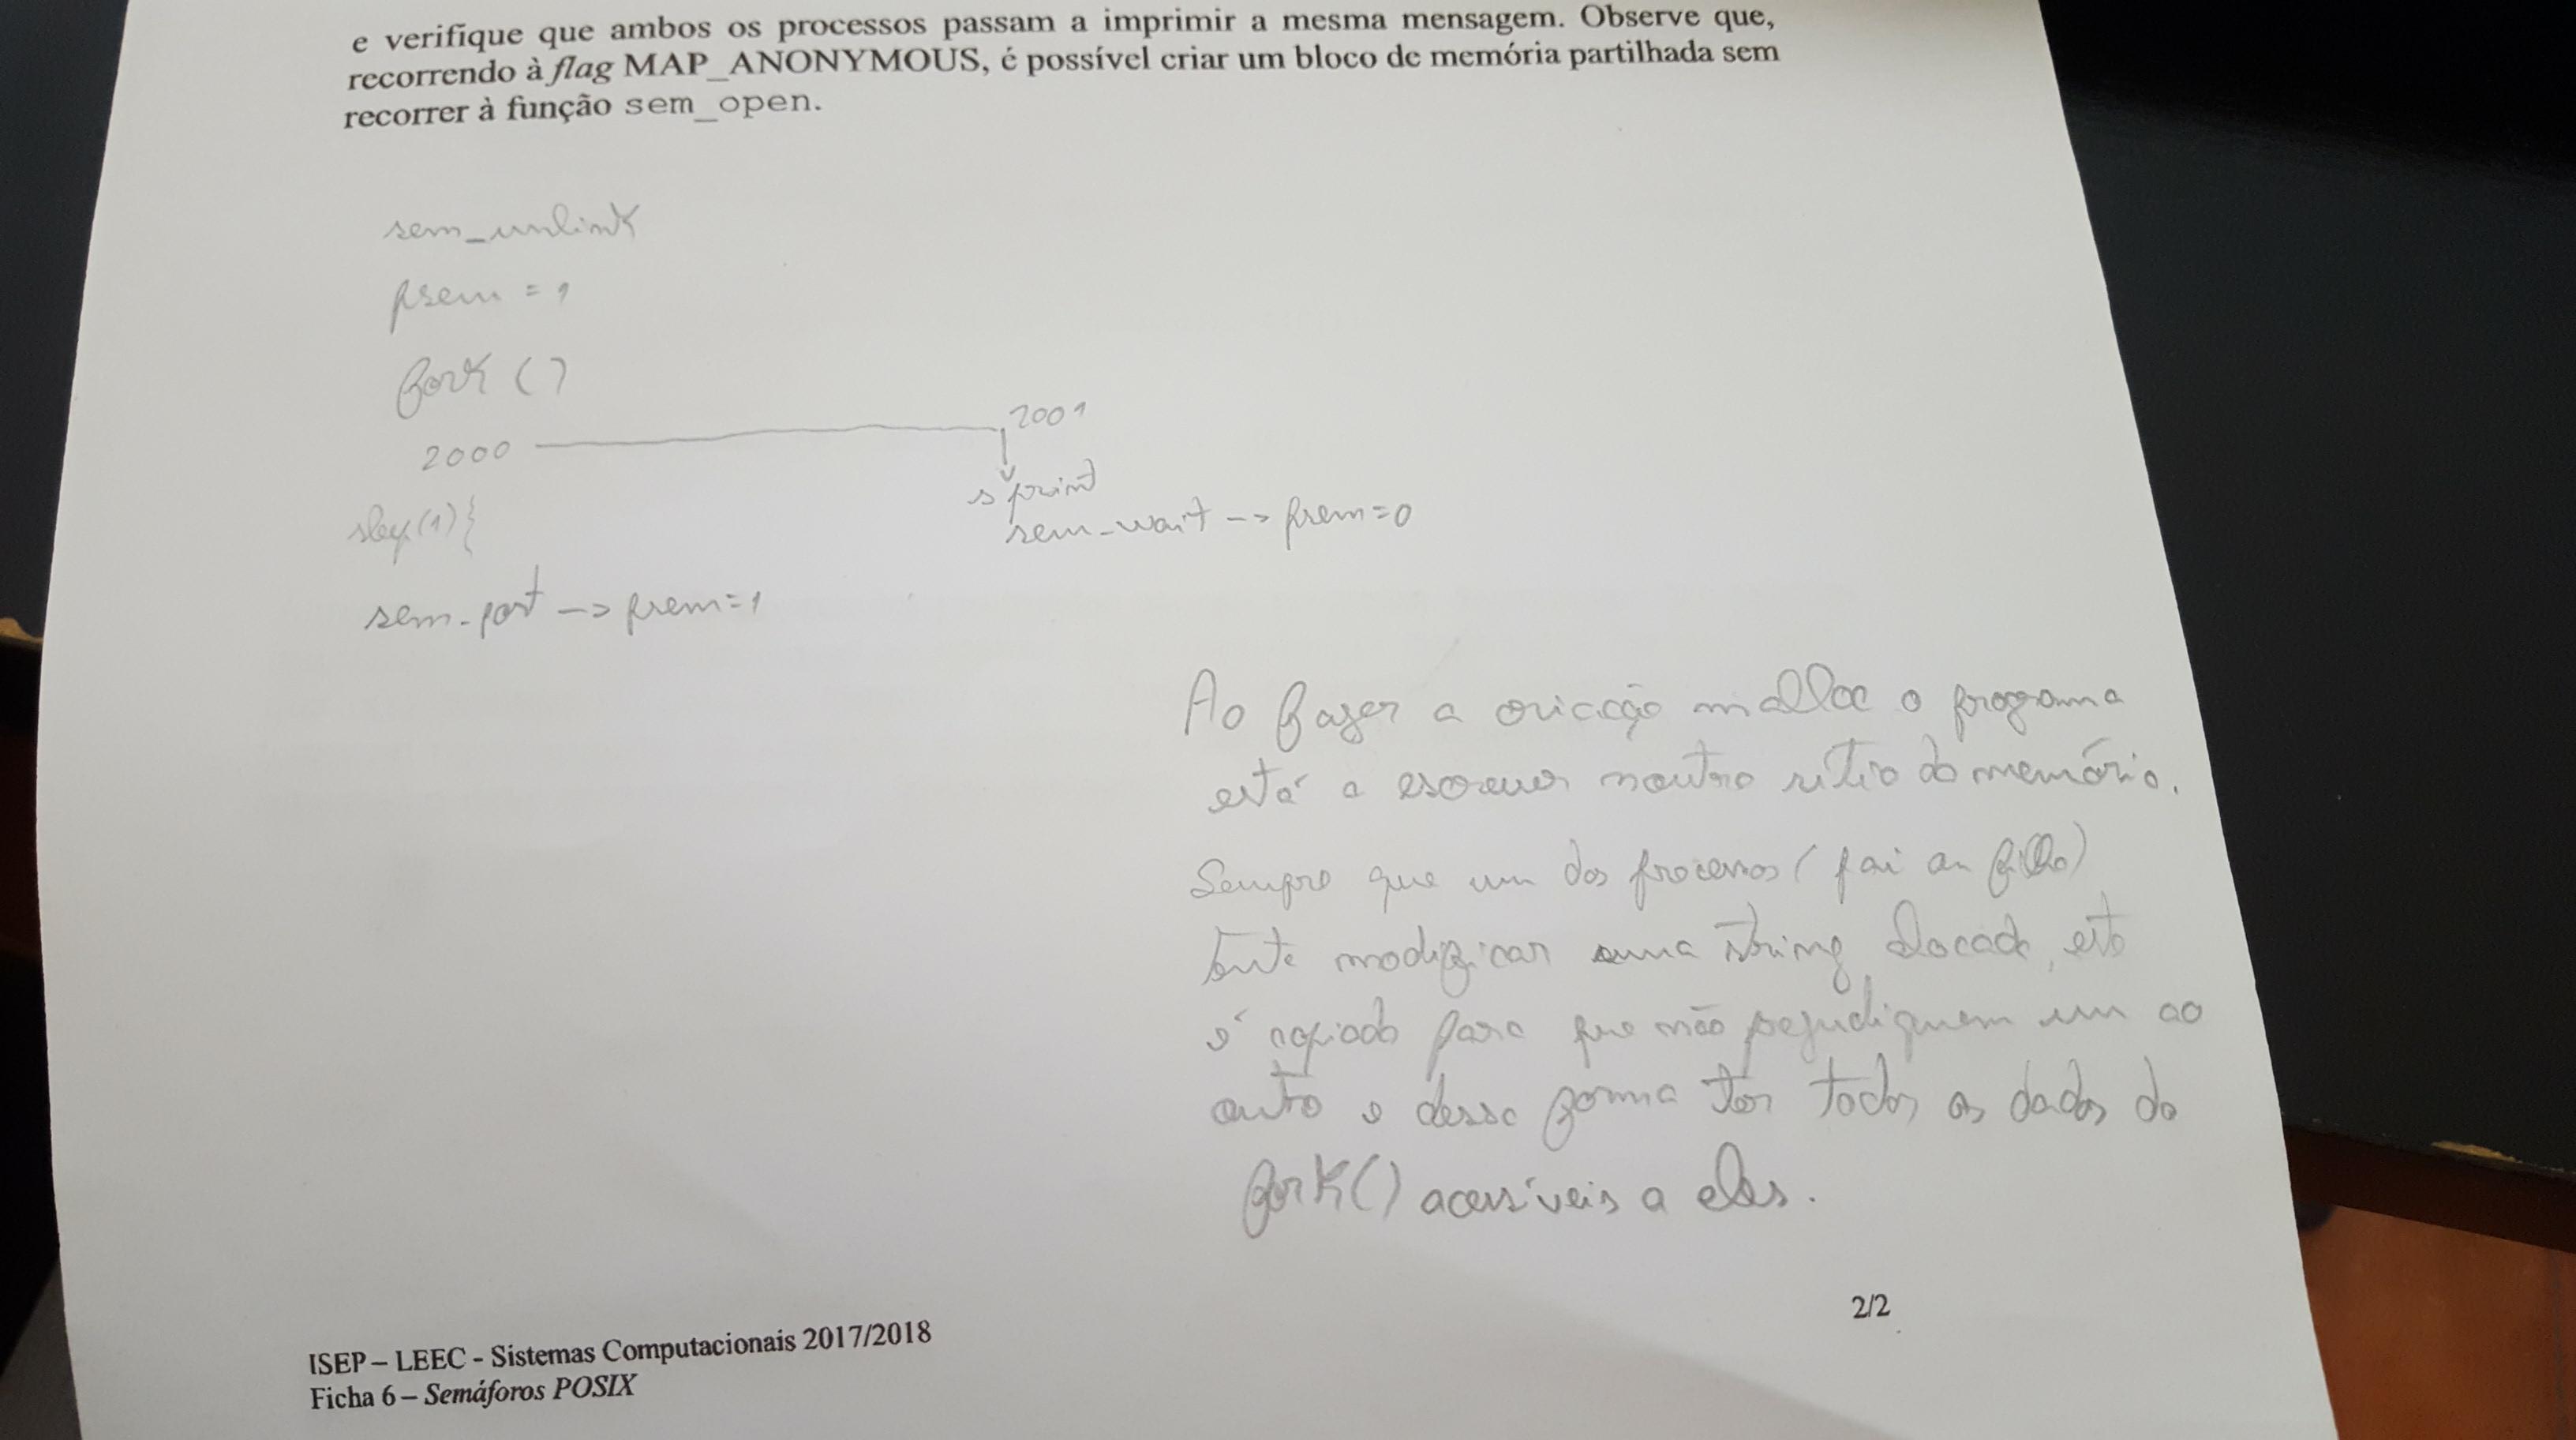 e verifique que ambos os processos passam a imprimir a mesma mensagem. Observe que,
recorrendo à flag MAP_ANONYMOUS, é possível criar um bloco de memória partilhada sem
recorrer à função sem_open.
sem_unlink
psem = 1
fork ()
2000 2001
sprint
sem-wait --> psem=0
slep(1){
sem-post --> psem=1
Ao fazer a criação malloc o programa
está a escrever noutro sítio da memória.
Sempre que um dos processos (pai ou filho)
tente modificar uma string alocada, esta
é copiada para que não prejudiquem um ao
outro e dessa forma ter todos os dados do
fork() acessíveis a eles.
2/2
ISEP – LEEC - Sistemas Computacionais 2017/2018
Ficha 6 – Semáforos POSIX